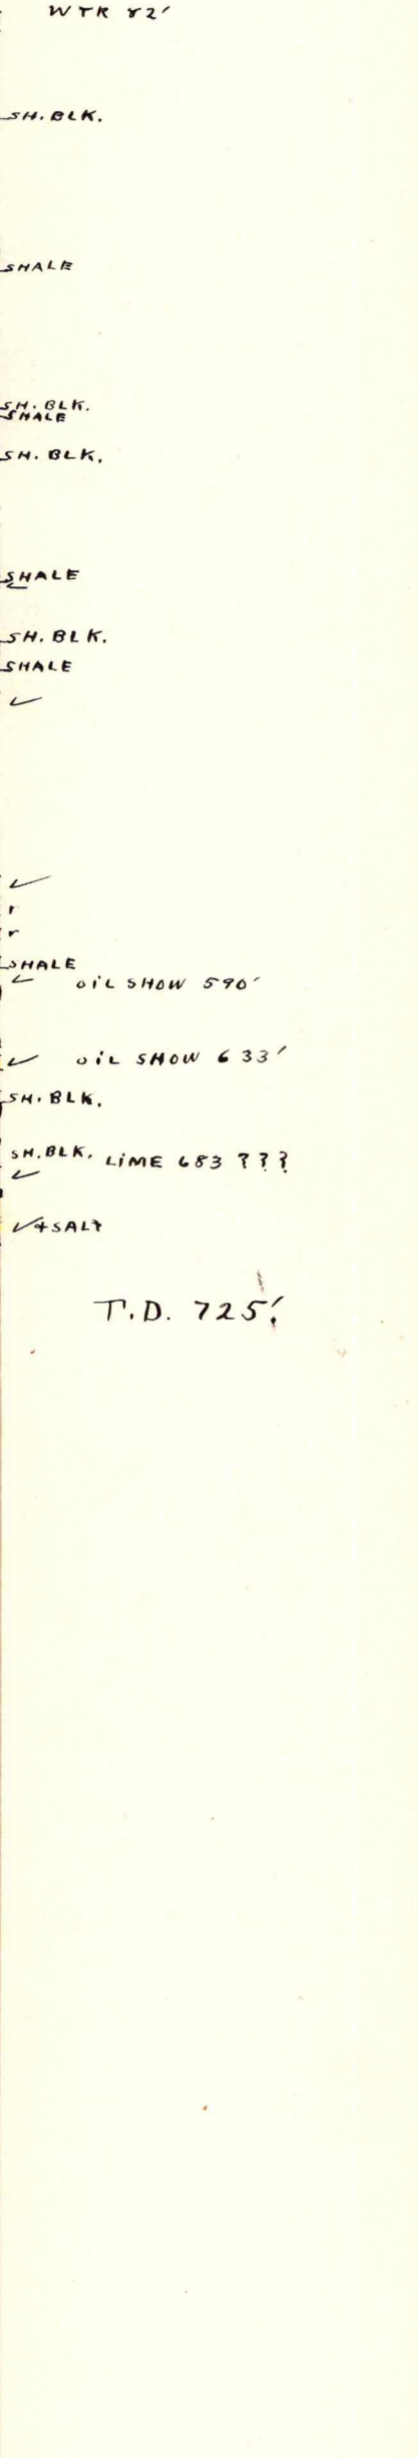 WTR 82'
SH. BLK.
SHALE
SH. BLK.
SHALE
SH. BLK.
SHALE
SH. BLK.
SHALE
✓
✓
r
r
SHALE
✓ OIL SHOW 590'
✓ OIL SHOW 633'
SH. BLK.
SH. BLK. LIME 683 ???
✓
✓+SALT
T.D. 725'